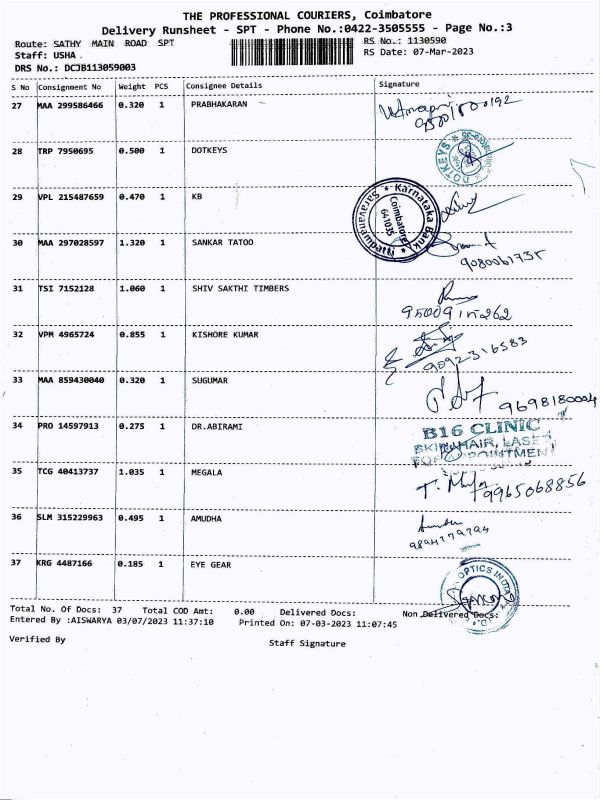 THE PROFESSIONAL COURIERS, Coimbatore
Delivery Runsheet - SPT - Phone No.:0422-3505555 - Page No.:3
Route: SATHY MAIN ROAD SPT
RS No.: 1130590
Staff: USHA
RS Date: 07-Mar-2023
DRS No.: DCJB113059003
S No Consignment No Weight PCS Consignee Details Signature
27 MAA 299586466 0.320 1 PRABHAKARAN
28 TRP 7950695 0.500 1 DOTKEYS
DOTKEYS
29 VPL 215487659 0.470 1 KB
Karnataka Bank
Coimbatore
641035
Saravanampatti
30 MAA 297028597 1.320 1 SANKAR TATOO
9080061735
31 TSI 7152128 1.060 1 SHIV SAKTHI TIMBERS
9500915262
32 VPM 4965724 0.855 1 KISHORE KUMAR
9092316583
33 MAA 859430040 0.320 1 SUGUMAR
9698180004
34 PRO 14597913 0.275 1 DR.ABIRAMI
B16 CLINIC
SKIN, HAIR, LASER
35 TCG 40413737 1.035 1 MEGALA
9965068856
36 SLM 315229963 0.495 1 AMUDHA
9894179794
37 KRG 4487166 0.185 1 EYE GEAR
OPTICS INDIA
Total No. Of Docs: 37 Total COD Amt: 0.00 Delivered Docs: Non Delivered Docs:
Entered By :AISWARYA 03/07/2023 11:37:10 Printed On: 07-03-2023 11:07:45
Verified By Staff Signature